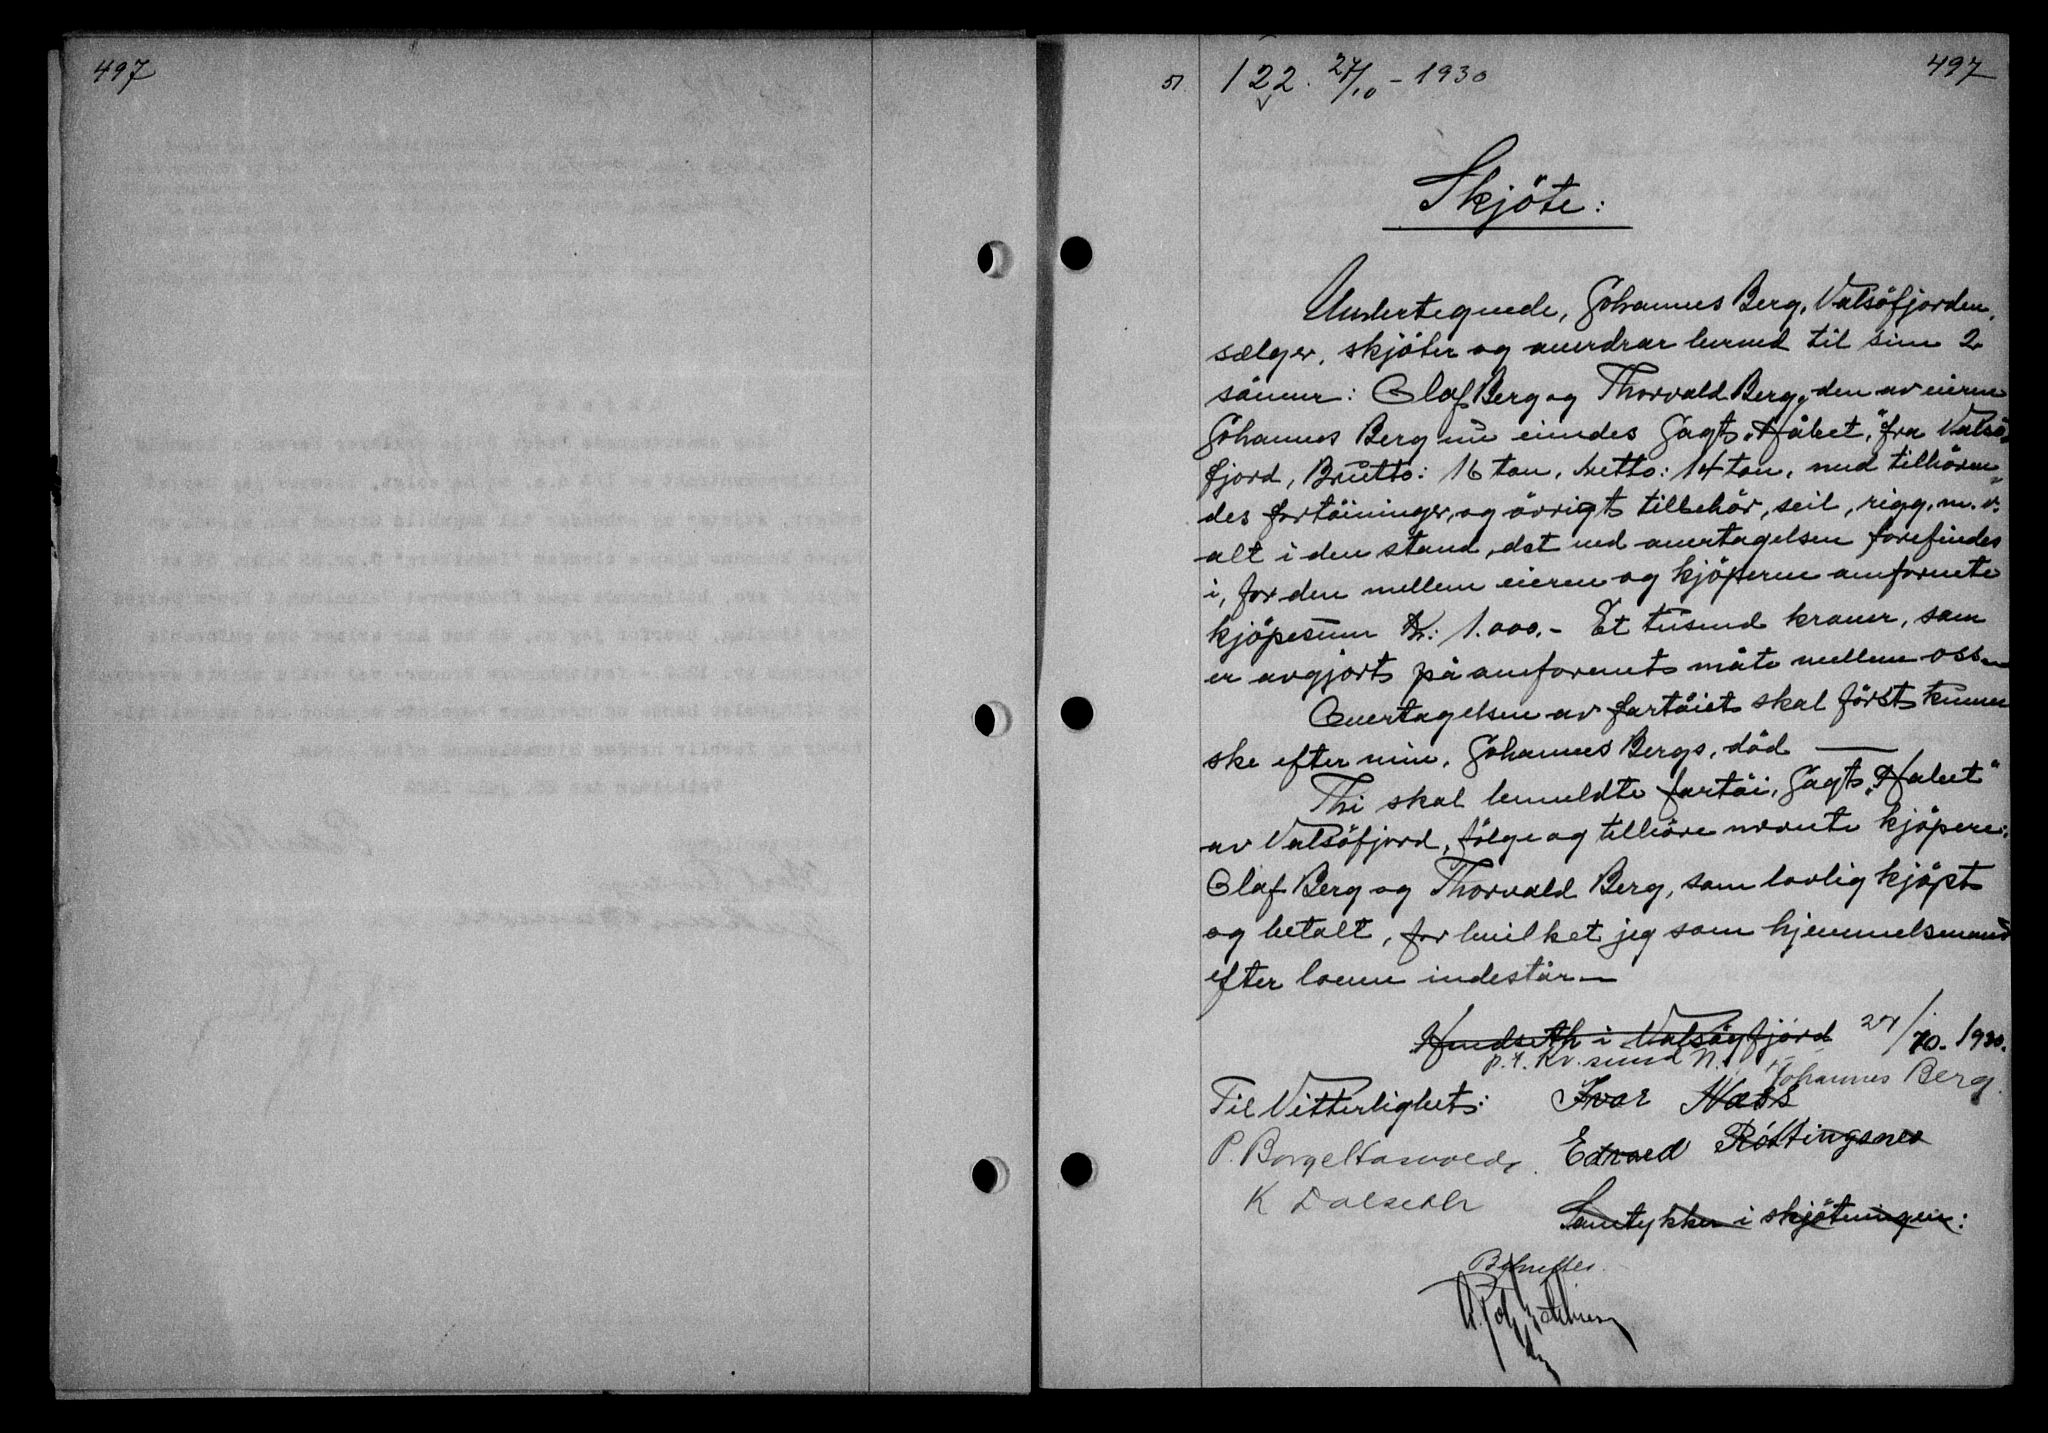 497
51 122. 27/10 - 1930 497
Skjöte:
Undertegnede, Johannes Berg, Valsöfjorden,
sælger, skjöter og overdrar herved til sine 2
sönner: Olaf Berg og Thorvald Berg, den av eieren
Johannes Berg nu eiendes Jagt, "Håbet," fra Valsö-
fjord, Brutto: 16 ton, Netto: 14 ton, med tilhören-
des fortöininger, og övrigt tilbehör, seil, rigg, m. v.
alt i den stand, det ved overtagelsen forefindes
i, for den mellem eieren og kjöperne omforente
kjöpesum Kr: 1.000.- Et tusend kroner, som
er avgjort på omforent måte mellem oss.
Overtagelsen av fartöiet skal först kunne
ske efter min, Johannes Bergs, död
Thi skal bemeldte fartöi, Jagt "Håbet"
av Valsöfjord, fölge og tilhöre nævnte kjöpere:
Olaf Berg og Thorvald Berg, som lovlig kjöpt
og betalt, for hvilket jeg som hjemmelsmand
efter loven indestår
Hendseth i Valsöyfjord 27/10-1930.
p.t. Kr.sund N.
Johannes Berg
Til Vitterlighet: Ivar Næss
P. Borgel Edvard Röttingsnes
K Dalseth
Samtykker i skjötningen:
Bekreftes